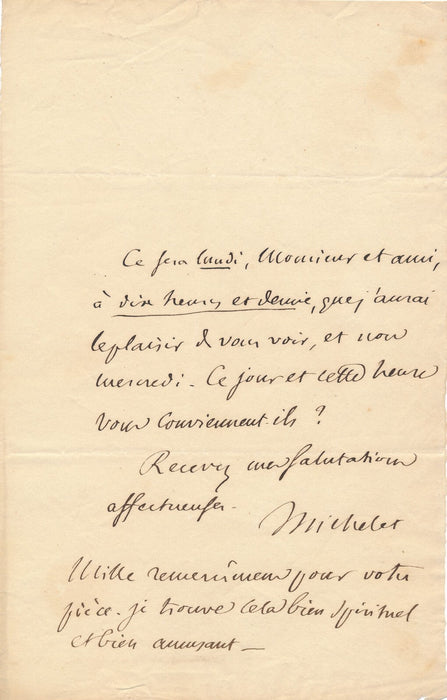 Ce sera lundi, Monsieur et ami,
à dix heures et demie, que j'aurai
le plaisir de vous voir, et non
mercredi. Ce jour et cette heure
vous conviennent-ils ?
Recevez mes salutations
affectueuses.
Michelet
Mille remerciemens pour votre
pièce. je trouve cela bien spirituel
et bien amusant —